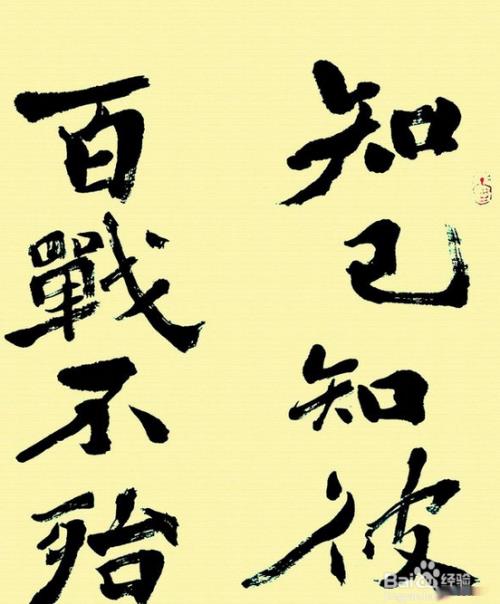 知己知彼
百戰不殆
Baidu 经验